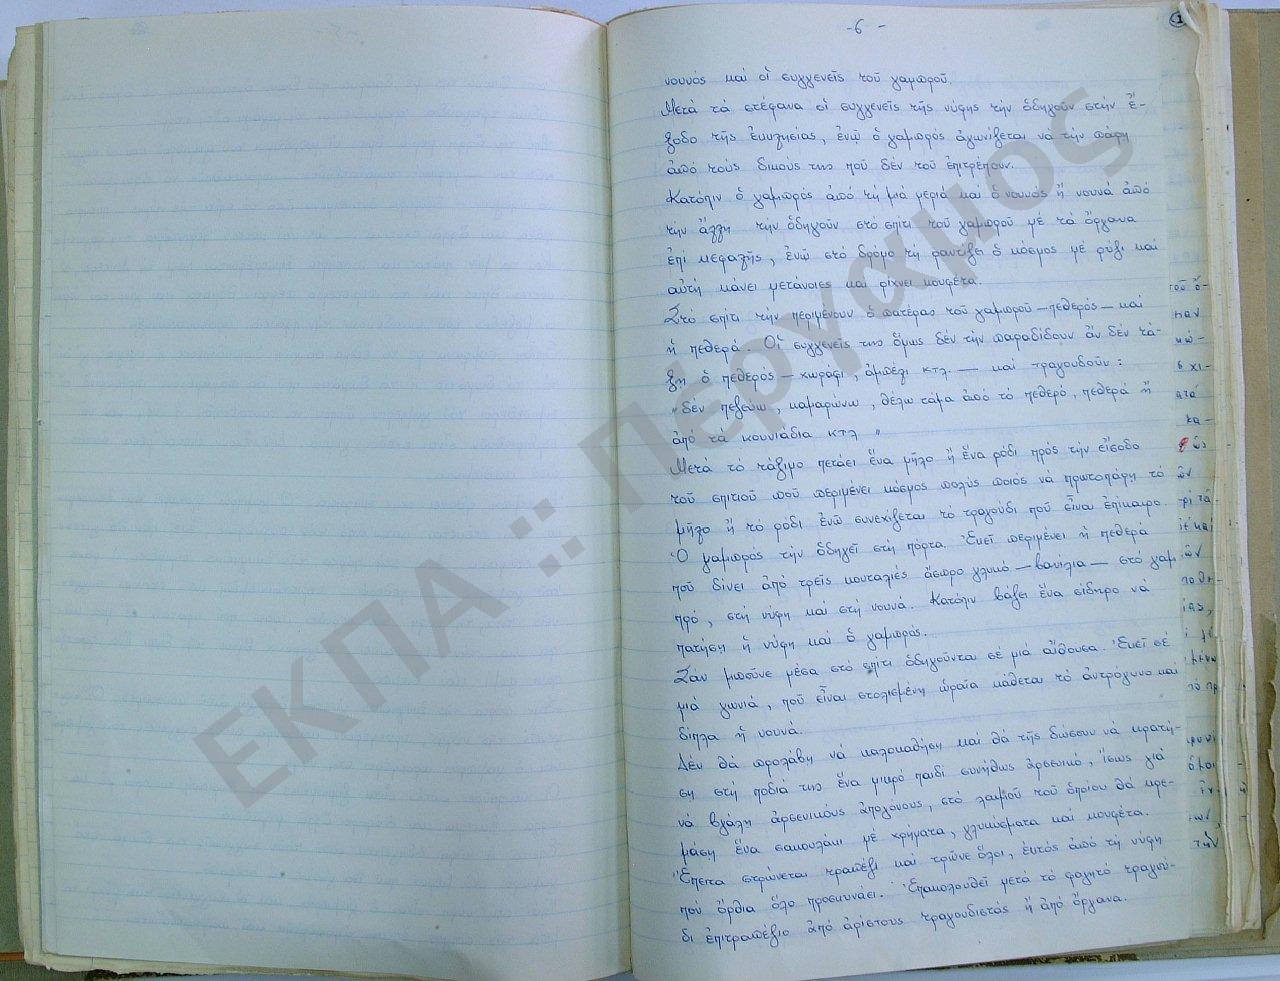 -6-
νουνός καί οἱ συγγενεῖς τοῦ γαμπροῦ.
Μετά τά στέφανα οἱ συγγενεῖς τῆς νύφης τήν ὁδηγοῦν στήν ἔ-
ξοδο τῆς ἐκκλησίας, ἐνῶ ὁ γαμπρός ἀγωνίζεται νά τήν πάρη
ἀπό τούς δικούς της πού δέν τοῦ ἐπιτρέπουν.
Κατόπιν ὁ γαμπρός ἀπό τή μιά μεριά καί ὁ νουνός ἤ νουνά ἀπό
τήν ἄλλη τήν ὁδηγοῦν στό σπίτι τοῦ γαμπροῦ μέ τά ὄργανα
ἐπί κεφαλῆς, ἐνῶ στό δρόμο τή ραντίζει ὁ κόσμος μέ ρύζι καί
αὐτή κάνει μετάνοιες καί ρίχνει κουφέτα.
Στό σπίτι τήν περιμένουν ὁ πατέρας τοῦ γαμπροῦ — πεθερός — καί
ἡ πεθερά. Οἱ συγγενεῖς της ὅμως δέν τήν παραδίδουν ἄν δέν τά-
ξη ὁ πεθερός — χωράφι, ἀμπέλι κτλ. — καί τραγουδοῦν:
"δέν πεζεύω, καμαρώνω, θέλω τάμα ἀπό τό πεθερό, πεθερά ἤ
ἀπό τά κουνιάδια κτλ "
Μετά τό τάξιμο πετάει ἕνα μῆλο ἤ ἕνα ρόδι πρός τήν εἴσοδο
τοῦ σπιτιοῦ πού περιμένει κόσμος πολύς ποιός νά πρωτοπάρη τό
μῆλο ἤ τό ρόδι ἐνῶ συνεχίζεται τό τραγούδι πού εἶναι ἐπίκαιρο.
Ὁ γαμπρός τήν ὁδηγεῖ στή πόρτα. Ἐκεῖ περιμένει ἡ πεθερά
πού δίνει ἀπό τρεῖς κουταλιές ἄσπρο γλυκό — βανίλια — στό γαμ
πρό, στή νύφη καί στή νουνά. Κατόπιν βάζει ἕνα σίδηρο νά
πατήση ἡ νύφη καί ὁ γαμπρός.
Σάν μποῦνε μέσα στό σπίτι ὁδηγοῦνται σέ μιά αἴθουσα. Ἐκεῖ σέ
μιά γωνιά, πού εἶναι στολισμένη ὡραῖα κάθεται τό ἀντρόγυνο καί
δίπλα ἡ νουνά.
Δέν θά προλάβη νά καλοκαθήση καί θά τῆς δώσουν νά κρατή-
ση στή ποδιά της ἕνα μικρό παιδί συνήθως ἀρσενικό, ἴσως γιά
νά βγάλη ἀρσενικούς ἀπογόνους, στό λαιμοῦ τοῦ ὁποίου θά κρε-
μάση ἕνα σακουλάκι μέ χρήματα, γλυκίσματα καί κουφέτα.
Ἔπειτα στρώνεται τραπέζι καί τρῶνε ὅλοι, ἐκτός ἀπό τή νύφη
πού ὄρθια ὅλο προσκυνάει. Ἐπακολουθεῖ μετά τό φαγητό τραγού-
δι ἐπιτραπέζιο ἀπό ἀρίστους τραγουδιστάς ἤ ἀπό ὄργανα.
ΕΚΠΑ :: Πέργαμος